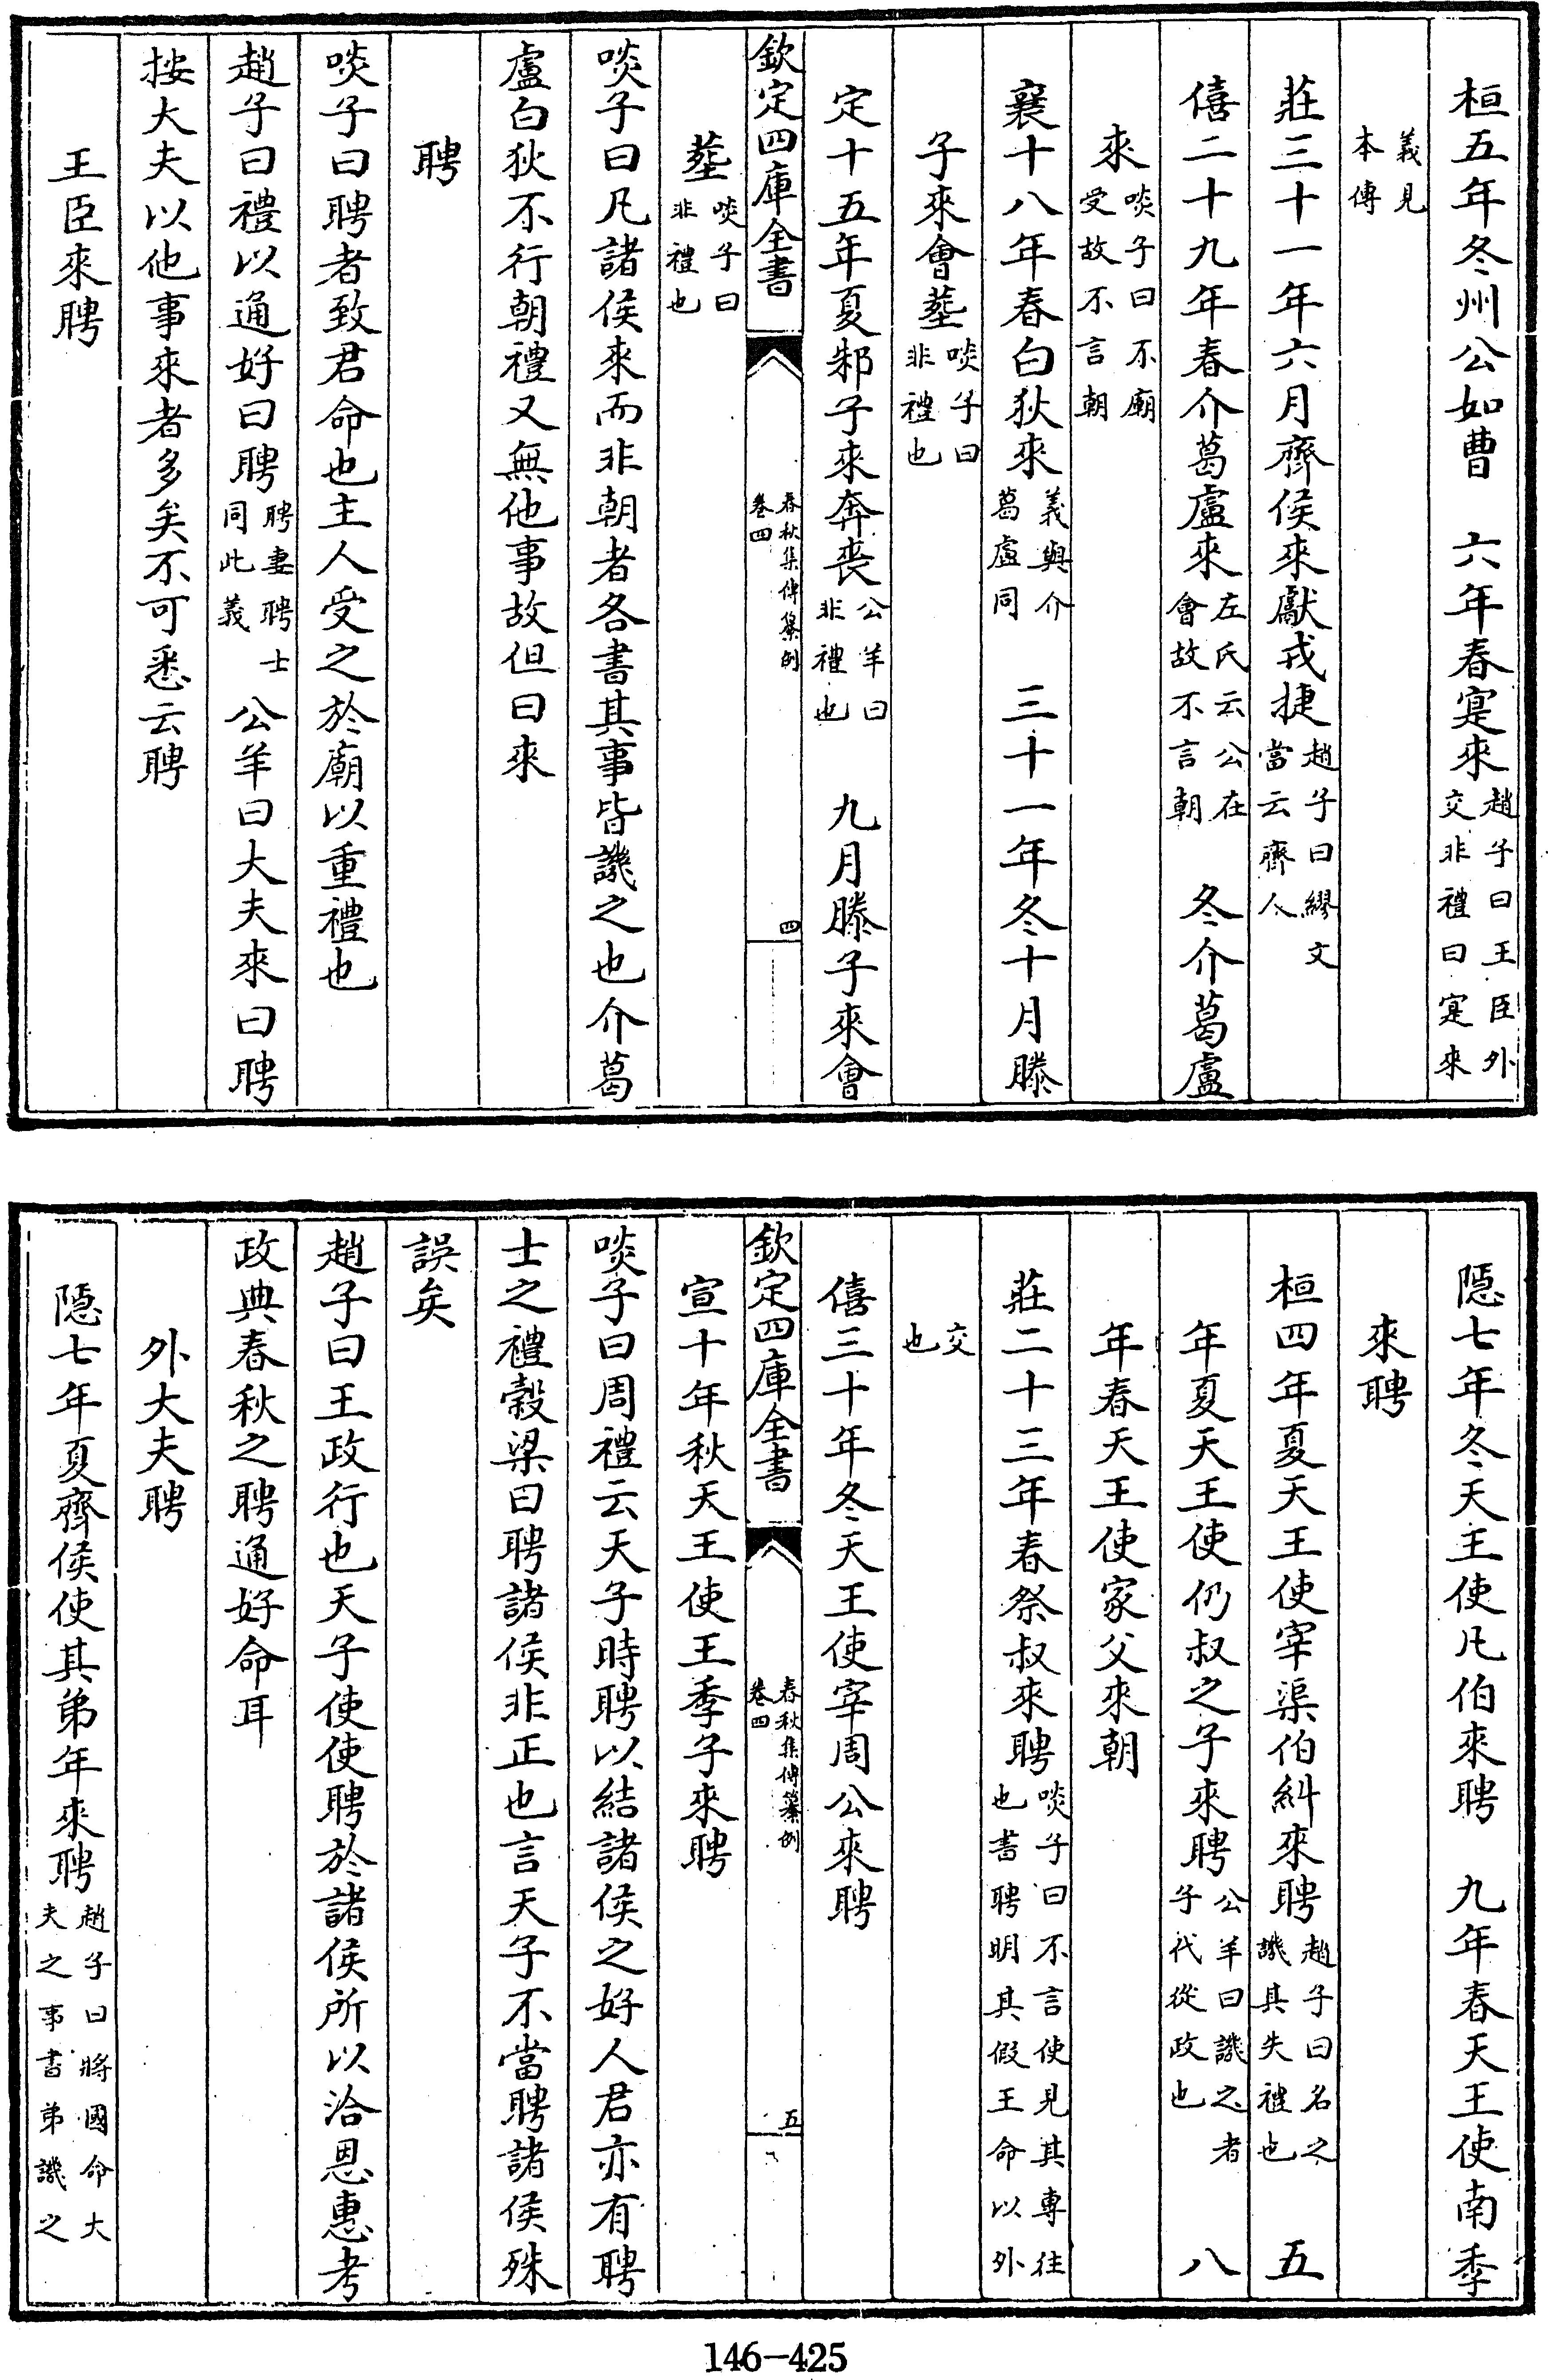 桓五年冬州公如曹　六年春寔來趙子曰王臣外交非禮曰寔來
義見本傳
莊三十一年六月齊侯來獻戎捷趙子曰繆文當云齊人
僖二十九年春介葛盧來左氏云公在會故不言朝　冬介葛盧
來啖子曰不廟受故不言朝
襄十八年春白狄來義與介葛盧同　三十一年冬十月滕
子來會塟啖子曰非禮也
定十五年夏邾子來奔喪公羊曰非禮也　九月滕子來會
欽定四庫全書　春秋集傳纂例卷四　四
塟啖子曰非禮也
啖子曰凡諸侯來而非朝者各書其事皆譏之也介葛
盧白狄不行朝禮又無他事故但曰來
聘
啖子曰聘者致君命也主人受之於廟以重禮也
趙子曰禮以通好曰聘聘妻聘士同此義　公羊曰大夫來曰聘
按大夫以他事來者多矣不可悉云聘
王臣來聘
隱七年冬天王使凡伯來聘　九年春天王使南季
來聘
桓四年夏天王使宰渠伯糾來聘趙子曰名之譏其失禮也　五
年夏天王使仍叔之子來聘公羊曰譏之者子代從政也　八
年春天王使家父來朝
莊二十三年春祭叔來聘啖子曰不言使見其專往也書聘明其假王命以外
交也
僖三十年冬天王使宰周公來聘
欽定四庫全書　春秋集傳纂例卷四　五
宣十年秋天王使王季子來聘
啖子曰周禮云天子時聘以結諸侯之好人君亦有聘
士之禮榖梁曰聘諸侯非正也言天子不當聘諸侯殊
誤矣
趙子曰王政行也天子使使聘於諸侯所以洽恩惠考
政典春秋之聘通好命耳
外大夫聘
隱七年夏齊侯使其弟年來聘趙子曰將國命大夫之事書弟譏之
146-425